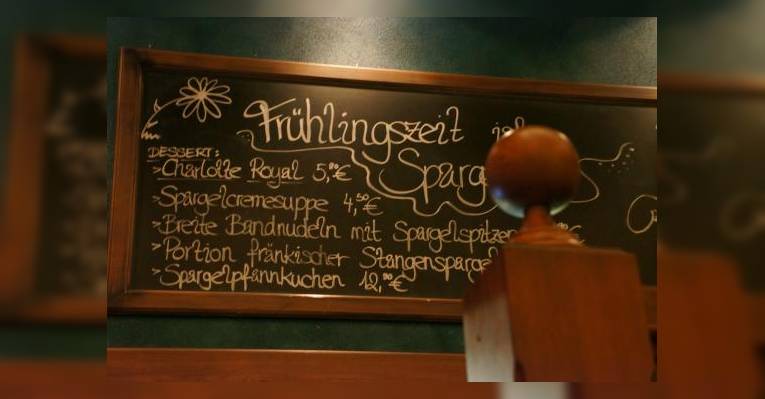 Frühlingszeit ist
Sparg
DESSERT:
>Charlotte Royal 5,00€
>Spargelcremesuppe 4,50€
>Breite Bandnudeln mit Spargelspitzen €
>Portion fränkischer Stangenspargel
>Spargelpfannkuchen 12,00€